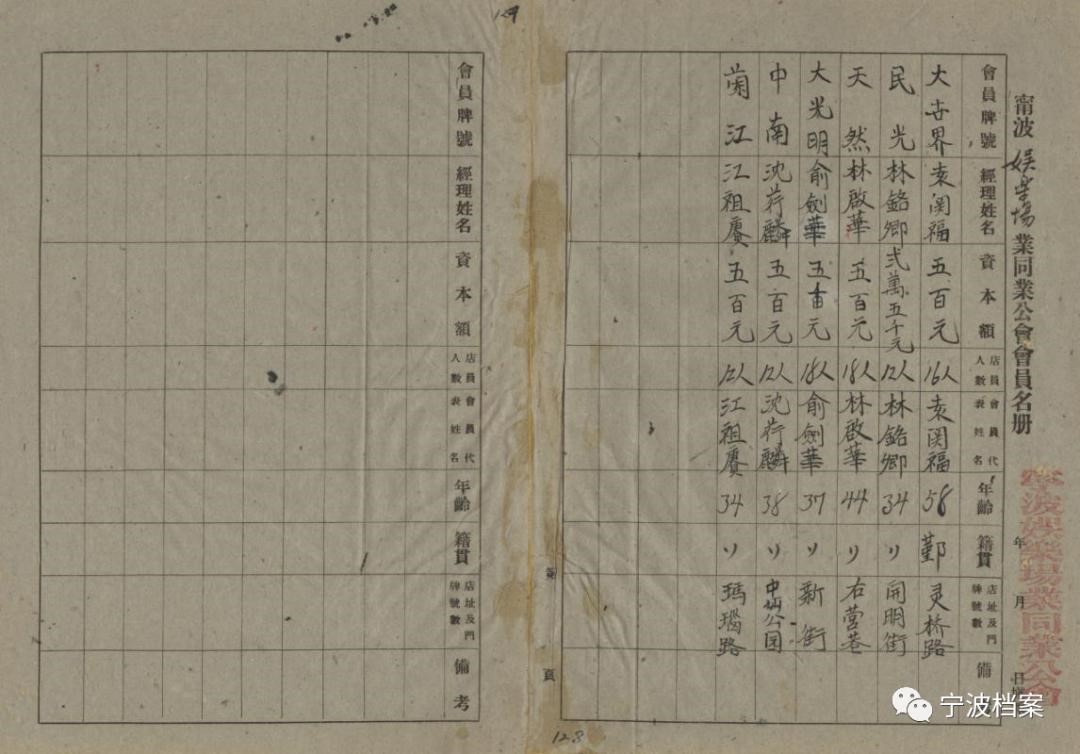 甯波娛樂場業同業公會會員名册
寧波娛樂場業同業公會
年 月 日
會員牌號 經理姓名 資本額 店員人數 會員代表姓名 年齡 籍貫 店址及門牌號數 備
大世界 袁閔福 五百元 16人 袁閔福 58 鄞 灵桥路
民光 林銘卿 弍萬五千元 12人 林銘卿 34 〃 開明街
天然 林啟華 五百元 18人 林啟華 44 〃 右营巷
大光明 俞劍華 五百元 18人 俞劍華 37 〃 新街
中南 沈荐麟 五百元 12人 沈荐麟 38 〃 中山公园
菊江 江祖賡 五百元 12人 江祖賡 34 〃 瑪瑙路
第 頁
會員牌號 經理姓名 資本額 店員人數 會員代表姓名 年齡 籍貫 店址及門牌號數 備考
129
128
宁波档案